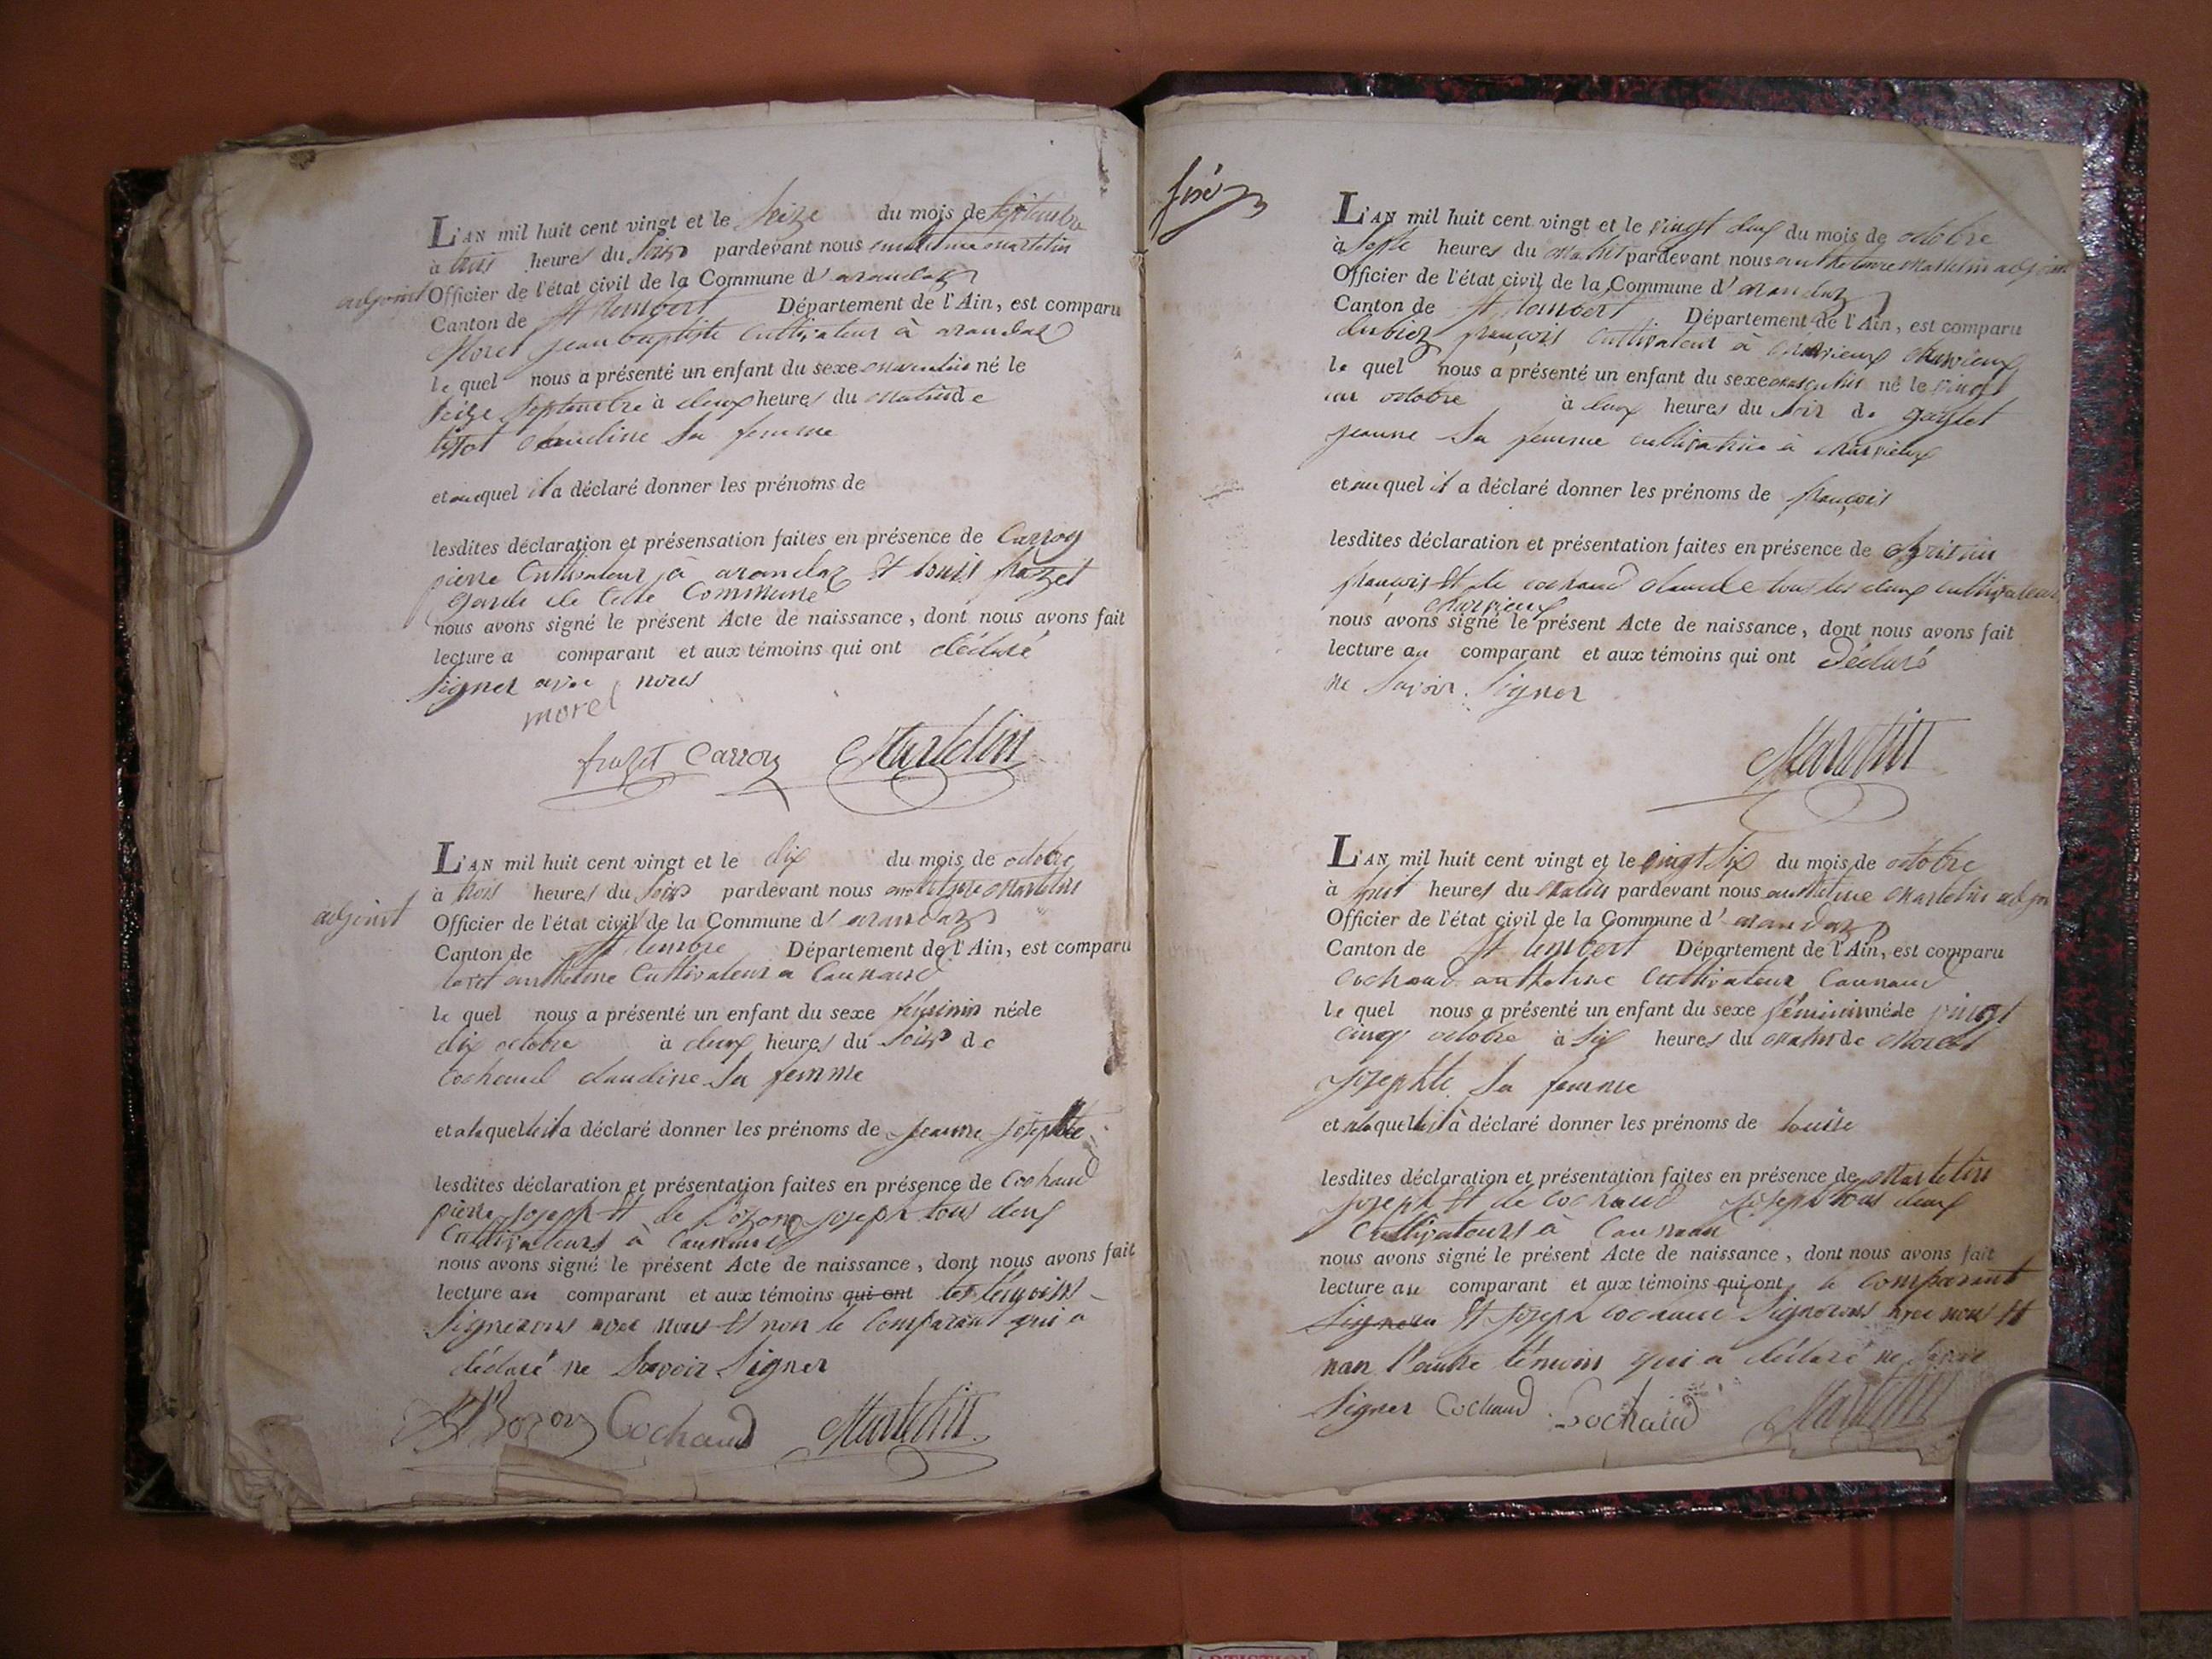 L'AN mil huit cent vingt et le Seize du mois de Septembre
à trois heures du Soir pardevant nous anthelme Martelin
adjoint Officier de l'état civil de la Commune d'arandaz
Canton de St Rembert Département de l'Ain, est comparu
Morel jean baptiste Cultivateur à arandaz
le quel nous a présenté un enfant du sexe masculin né le
Seize Septembre à deux heures du Matin de
tissot Claudine Sa femme
et auquel il a déclaré donner les prénoms de
lesdites déclaration et présensation faites en présence de Carroz
pierre Cultivateur à arandaz Et louis frazet
garde de Cette Commune
nous avons signé le présent Acte de naissance, dont nous avons fait
lecture a comparant et aux témoins qui ont déclaré
Signer avec nous
morel
frazet Carroz Martelin
L'AN mil huit cent vingt et le dix du mois de octobre
à trois heures du Soir pardevant nous anthelme Martelin
adjoint Officier de l'état civil de la Commune d'arandaz
Canton de St Rembre Département de l'Ain, est comparu
anthelme Cultivateur a Caunand
le quel nous a présenté un enfant du sexe féminin née le
dix octobre à deux heures du Soir de
Cochaud claudine Sa femme
et a laquelle il a déclaré donner les prénoms de jeanne josephte
lesdites déclaration et présentation faites en présence de Cochaud
pierre joseph Et de Bozon joseph tous deux
Cultivateurs à Caunand
nous avons signé le présent Acte de naissance, dont nous avons fait
lecture au comparant et aux témoins qui ont les témoins
Signerons avec nous Et non le Comparant qui a
déclaré ne Savoir Signer
Bozon Cochaud Martelin
L'AN mil huit cent vingt et le vingt deux du mois de octobre
à Sept heures du Matin pardevant nous anthelme Martelin adjoint
Officier de l'état civil de la Commune d'arandaz
Canton de St Rembert Département de l'Ain, est comparu
dubiez françois Cultivateur à Charvieux
le quel nous a présenté un enfant du sexe masculin né le vingt
un octobre à deux heures du Soir de
jeanne Sa femme cultivatrice à Charvieux
et au quel il a déclaré donner les prénoms de françois
lesdites déclaration et présentation faites en présence de
françois Et de cochaud claude tous les deux cultivateur
Charvieux
nous avons signé le présent Acte de naissance, dont nous avons fait
lecture au comparant et aux témoins qui ont Déclaré
ne Savoir Signer
Martelin
L'AN mil huit cent vingt et le vingt Six du mois de octobre
à huit heures du Matin pardevant nous anthelme Martelin adjoin
Officier de l'état civil de la Commune d'arandaz
Canton de St Rembert Département de l'Ain, est comparu
Cochaud anthelme Cultivateur Caunand
le quel nous a présenté un enfant du sexe féminin née le vingt
cinq octobre à Six heures du Matin de Morel
josephte Sa femme
et a laquelle il à déclaré donner les prénoms de louise
lesdites déclaration et présentation faites en présence de Martelin
joseph Et de Cochaud joseph tous deux
Cultivateurs à Caunand
nous avons signé le présent Acte de naissance, dont nous avons fait
lecture au comparant et aux témoins qui ont le Comparant
Signera Et joseph cochaud Signerons avec nous Et
non l'autre témoin qui a déclaré ne Savoir
Signer Cochaud Cochaud Martelin